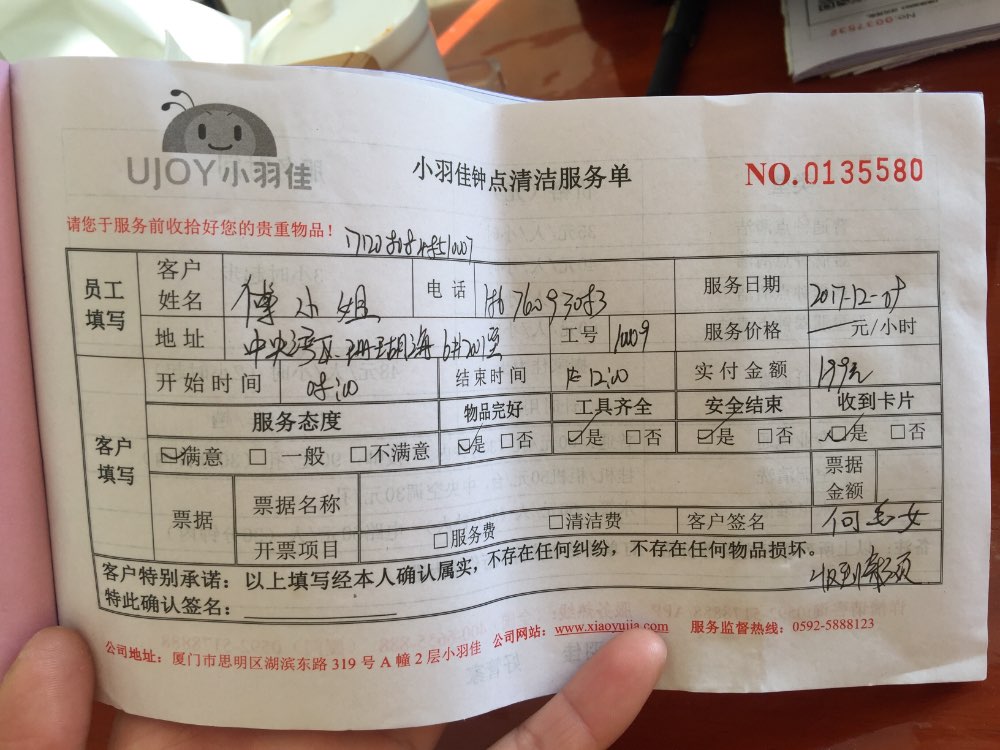 No.0037832
UJOY小羽佳
小羽佳钟点清洁服务单
NO.0135580
请您于服务前收拾好您的贵重物品！
员工填写
客户姓名
傅小姐
电话
服务日期
2017-12-08
地址
中央湾区珊瑚海6#201室
工号
10009
服务价格
元/小时
客户填写
开始时间
结束时间
12:00
实付金额
199元
服务态度
物品完好
工具齐全
安全结束
收到卡片
☑满意 □一般 □不满意
☑是 □否
☑是 □否
☑是 □否
☑是 □否
票据
票据名称
票据金额
开票项目
□服务费
□清洁费
客户签名
客户特别承诺：以上填写经本人确认属实，不存在任何纠纷，不存在任何物品损坏。
特此确认签名：
公司地址：厦门市思明区湖滨东路319号A幢2层小羽佳
公司网站：www.xiaoyujia.com
服务监督热线：0592-5888123